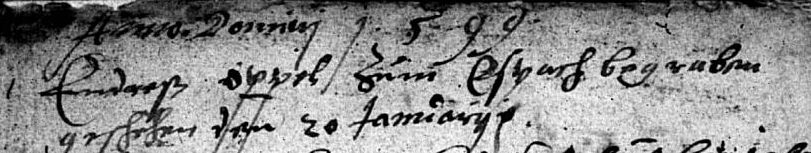 Anno Domini 1599
1 Endreß Oppel Zum Espach begraben
geschehen den 20 Januarij.